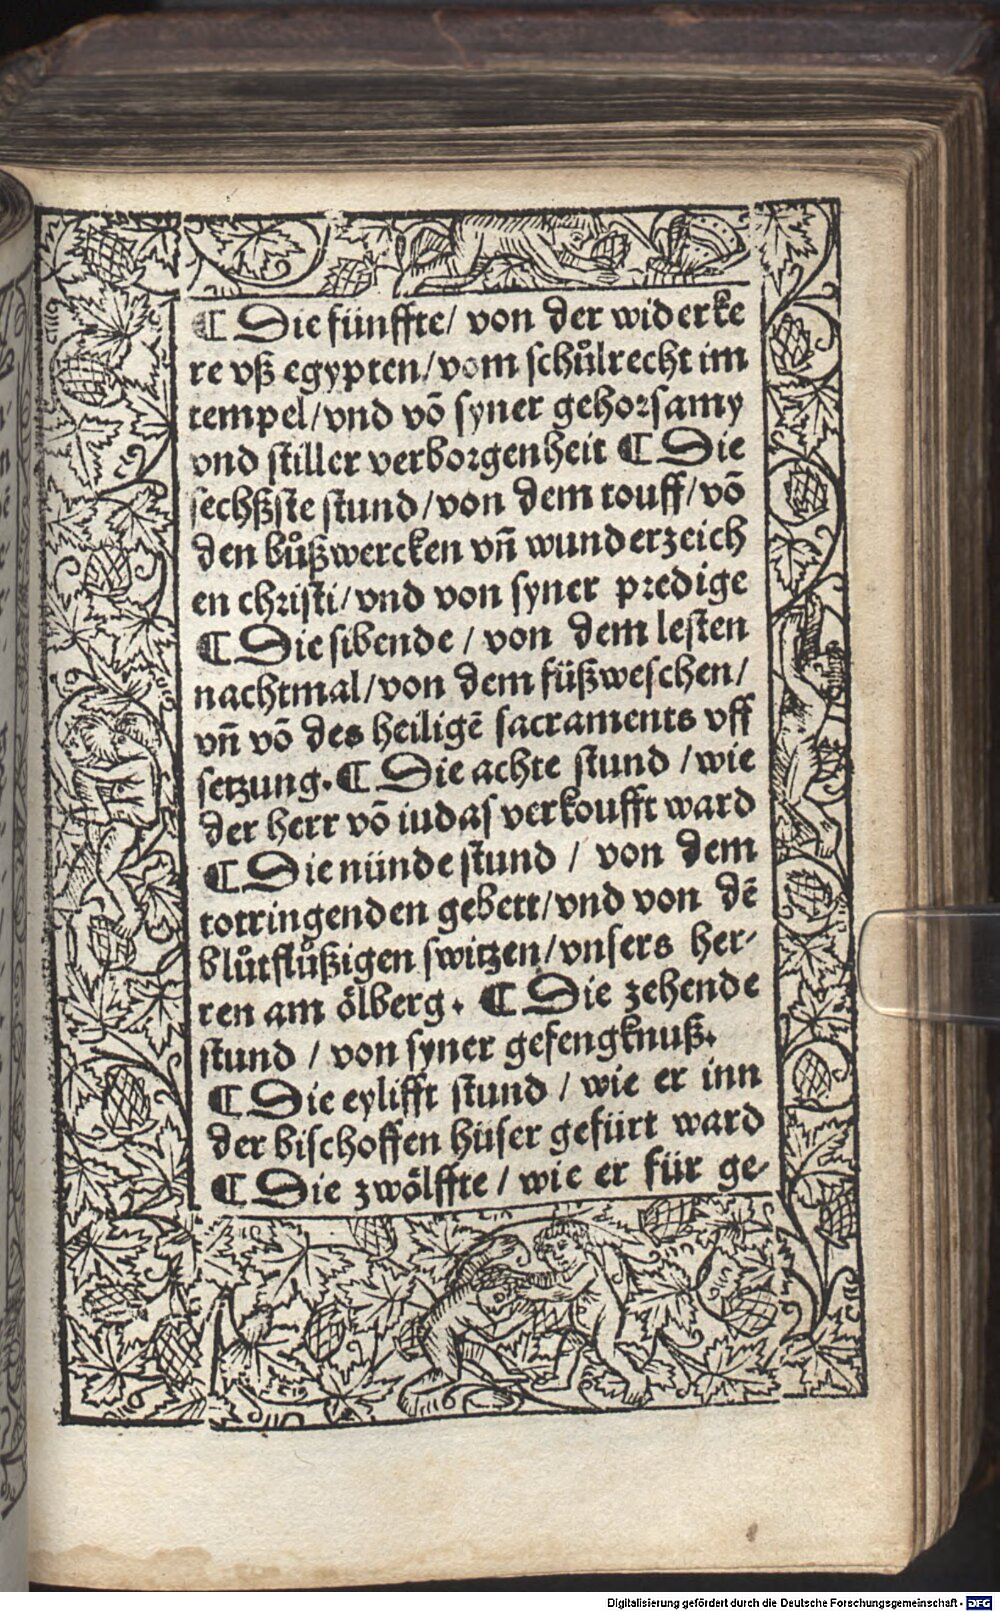 ¶ Die fünffte/ von der widerke
re vß egypten/vom schůlrecht im
tempel/vnd võ syner gehorsamy
vnd stiller verborgenheit ¶ Die
sechßste stund/von dem touff/võ
den bůßwercken vñ wunderzeich
en christi/vnd von syner predige
¶ Die sibende / von dem lesten
nachtmal/von dem füßweschen/
vñ võ des heiligẽ sacraments vff
setzung. ¶ Die achte stund /wie
der herr võ iudas verkoufft ward
¶ Die nünde stund / von dem
totringenden gebett/vnd von dẽ
blůtflůßigen switzen/vnsers her-
ren am ölberg. ¶ Die zehende
stund / von syner gefengknuß.
¶ Die eylifft stund / wie er inn
der bischoffen hüser gefürt ward
¶ Die zwölffte / wie er für ge-
Digitalisierung gefördert durch die Deutsche Forschungsgemeinschaft - DFG